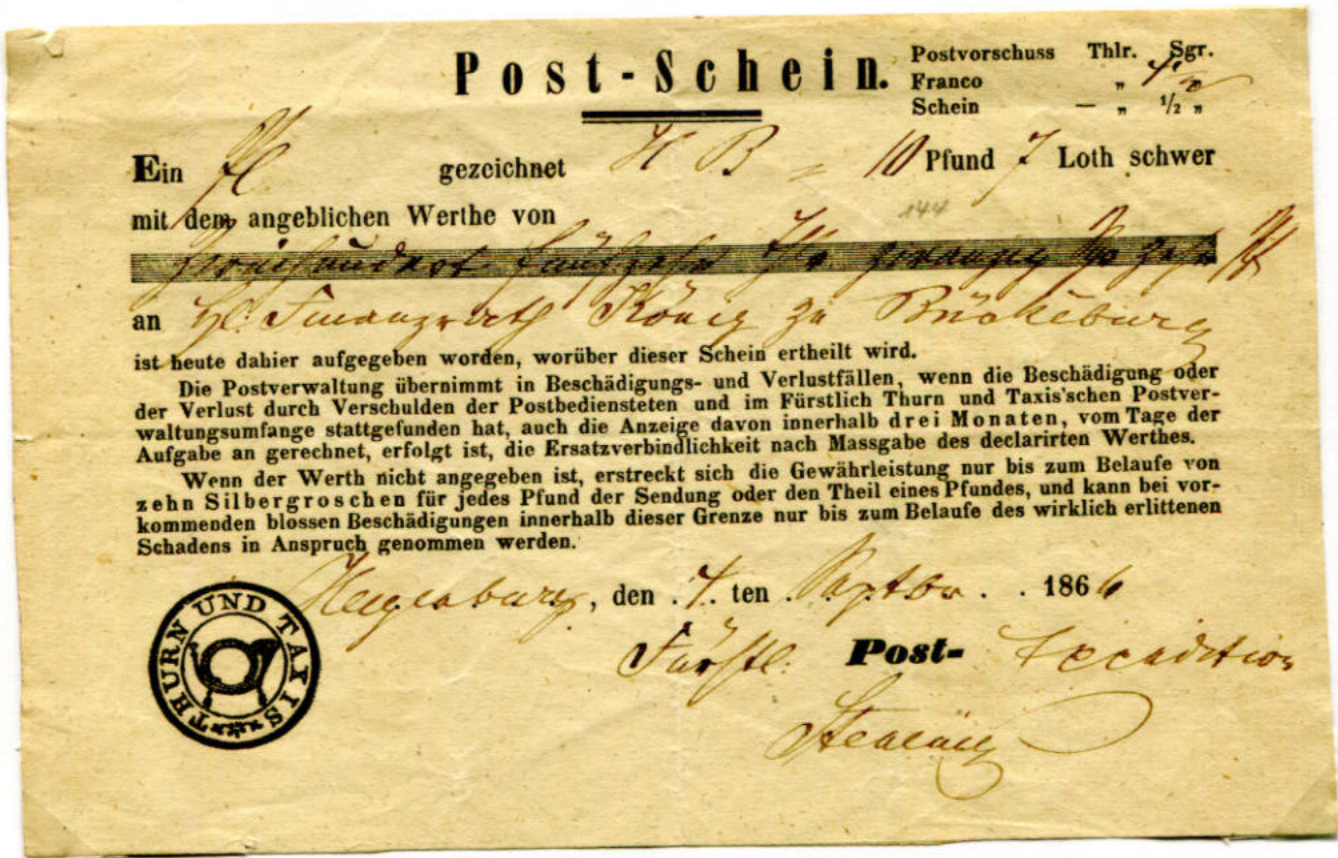 Post-Schein.
Postvorschuss Thlr. Sgr.
Franco „ „
Schein — „ ½ „
Ein gezeichnet H B 10 Pfund 7 Loth schwer
mit dem angeblichen Werthe von 144
zweihundert fünfzehn zwanzig zehn
an Finanzrath König zu Bückeburg
ist heute dahier aufgegeben worden, worüber dieser Schein ertheilt wird.
Die Postverwaltung übernimmt in Beschädigungs- und Verlustfällen, wenn die Beschädigung oder
der Verlust durch Verschulden der Postbediensteten und im Fürstlich Thurn und Taxis'schen Postver-
waltungsumfange stattgefunden hat, auch die Anzeige davon innerhalb drei Monaten, vom Tage der
Aufgabe an gerechnet, erfolgt ist, die Ersatzverbindlichkeit nach Massgabe des declarirten Werthes.
Wenn der Werth nicht angegeben ist, erstreckt sich die Gewährleistung nur bis zum Belaufe von
zehn Silbergroschen für jedes Pfund der Sendung oder den Theil eines Pfundes, und kann bei vor-
kommenden blossen Beschädigungen innerhalb dieser Grenze nur bis zum Belaufe des wirklich erlittenen
Schadens in Anspruch genommen werden.
, den 4. ten Septbr. 1866
Fürstl. Post- Expedition
THURN UND TAXIS